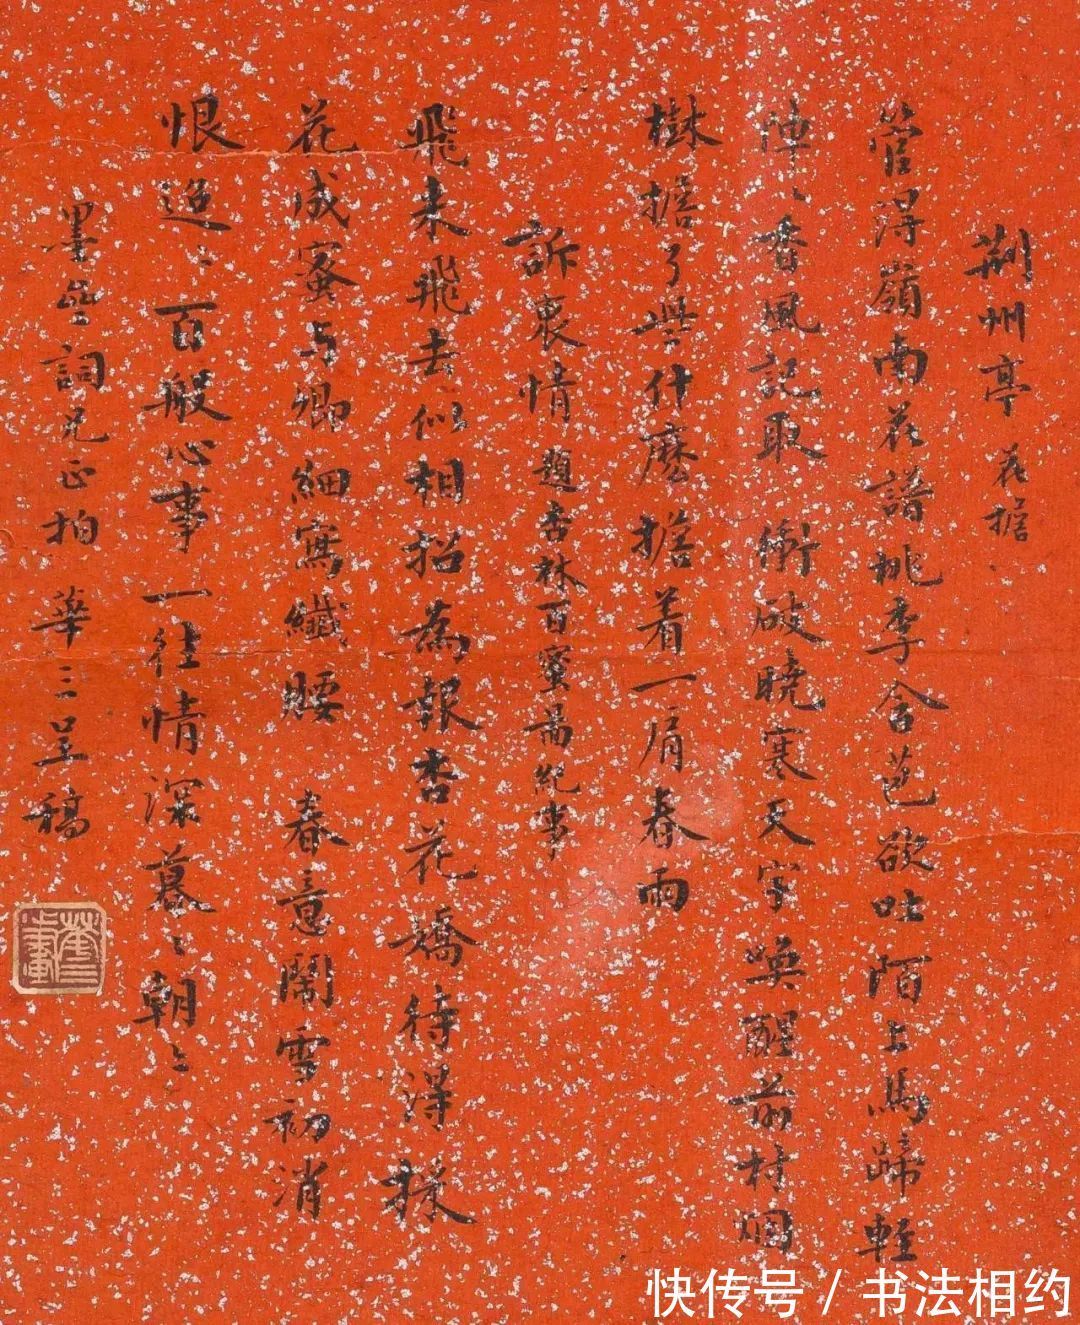 荆州亭 花擔
管得嶺南花譜桃李含苞欲吐陌上馬蹄輕
陣〻香風記取 衝破曉寒天字喚醒前村烟
樹擔了些什麼擔着一肩春雨
訴衷情 題杏林百蜜啚紀事
飛來飛去似相招為報杏花嬌待得採
花成蜜与卿細寫纖腰 春意鬧雪初消
恨迢〻百般心事一往情深暮〻朝〻
墨 詞兄正拍 華三呈稿
快传号 / 书法相约